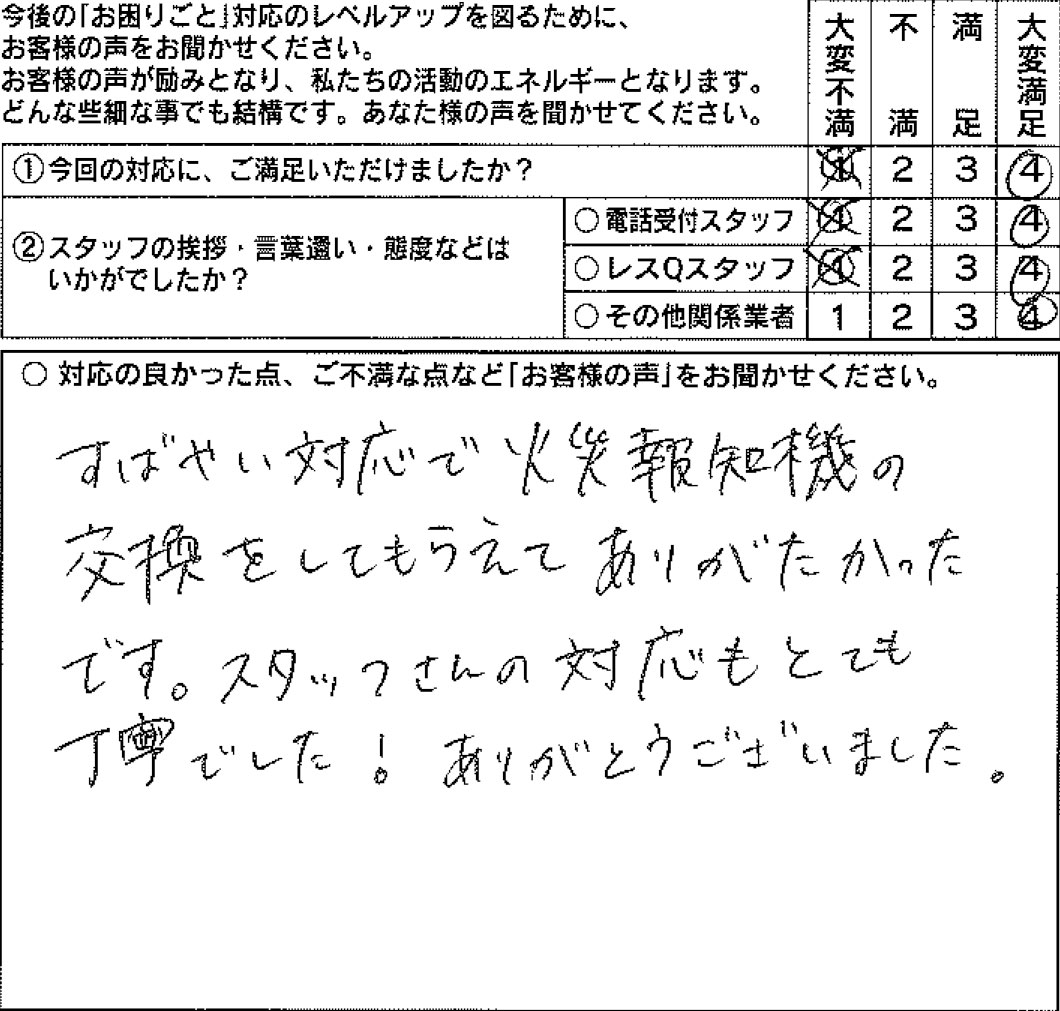 今後の｢お困りごと｣対応のレベルアップを図るために、
お客様の声をお聞かせください。
お客様の声が励みとなり、私たちの活動のエネルギーとなります。
どんな些細な事でも結構です。あなた様の声を聞かせてください。
大変不満 不満 満足 大変満足
①今回の対応に、ご満足いただけましたか？ 1 2 3 4
②スタッフの挨拶・言葉遣い・態度などは
いかがでしたか？
○電話受付スタッフ 1 2 3 4
○レスQスタッフ 1 2 3 4
○その他関係業者 1 2 3 4
○ 対応の良かった点、ご不満な点など｢お客様の声｣をお聞かせください。
すばやい対応で火災報知機の
交換をしてもらえてありがたかった
です。スタッフさんの対応もとても
丁寧でした！ありがとうございました。